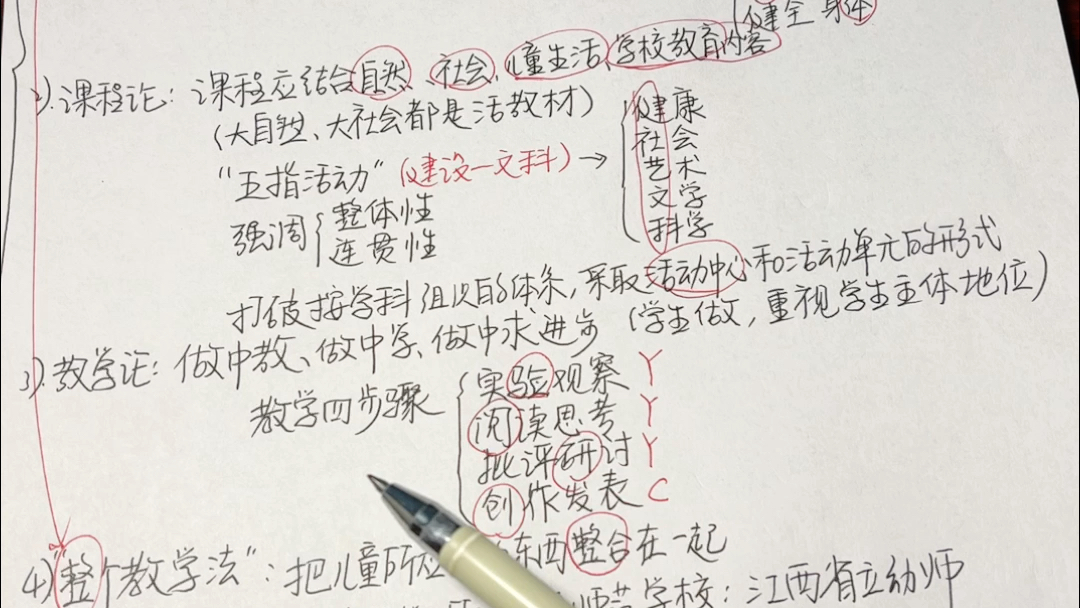 健全身体
2).课程论：课程应结合自然、社会、儿童生活、学校教育内容
(大自然、大社会都是活教材)
"五指活动"(健设一文科)→
健康
社会
艺术
文学
科学
强调
整体性
连贯性
打破按学科组织的体系,采取活动中心和活动单元的形式
3).教学论：做中教、做中学、做中求进步 (学生做,重视学生主体地位)
教学四步骤
实验观察 Y
阅读思考 Y
批评研讨 Y
创作发表 C
4)"整个教学法"：把儿童所应 东西整合在一起
学校：江西省立幼师